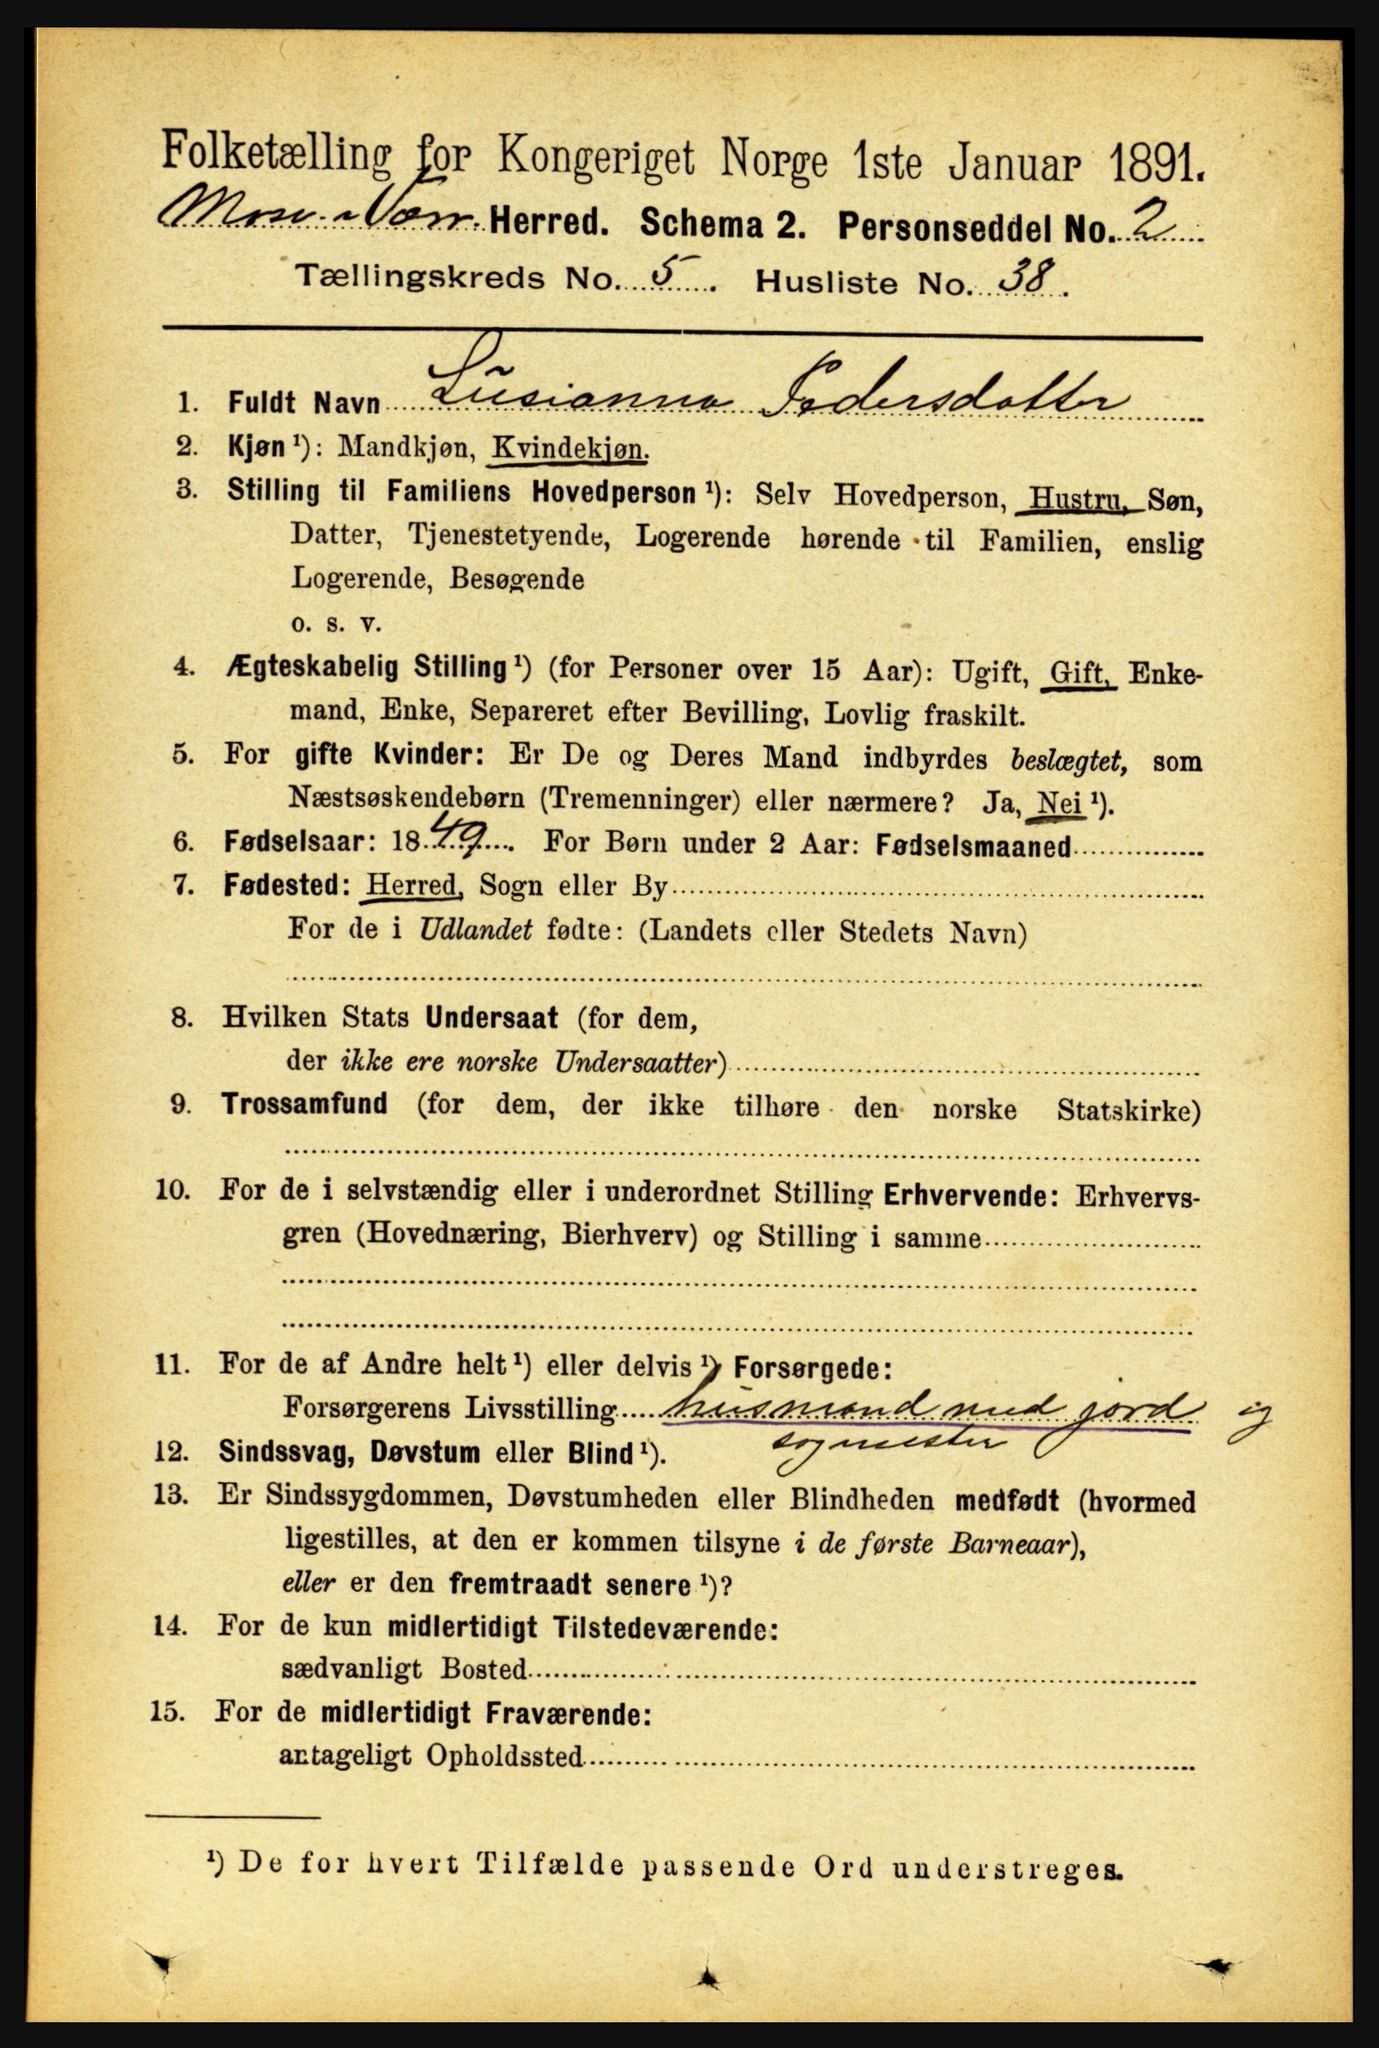 Folketælling for Kongeriget Norge 1ste Januar 1891.
Mosc. Værr. Herred. Schema 2. Personseddel No. 2
Tællingskreds No. 5. Husliste No. 38.
1. Fuldt Navn Lusianna Pedersdatter
2. Kjøn ¹): Mandkjøn, Kvindekjøn.
3. Stilling til Familiens Hovedperson ¹): Selv Hovedperson, Hustru, Søn,
Datter, Tjenestetyende, Logerende hørende til Familien, enslig
Logerende, Besøgende
o. s. v.
4. Ægteskabelig Stilling ¹) (for Personer over 15 Aar): Ugift, Gift, Enke-
mand, Enke, Separeret efter Bevilling, Lovlig fraskilt.
5. For gifte Kvinder: Er De og Deres Mand indbyrdes beslægtet, som
Næstsøskendebørn (Tremenninger) eller nærmere? Ja, Nei ¹).
6. Fødselsaar: 1849. For Børn under 2 Aar: Fødselsmaaned
7. Fødested: Herred, Sogn eller By
For de i Udlandet fødte: (Landets eller Stedets Navn)
8. Hvilken Stats Undersaat (for dem,
der ikke ere norske Undersaatter)
9. Trossamfund (for dem, der ikke tilhøre den norske Statskirke)
10. For de i selvstændig eller i underordnet Stilling Erhvervende: Erhvervs-
gren (Hovednæring, Bierhverv) og Stilling i samme
11. For de af Andre helt ¹) eller delvis ¹) Forsørgede:
Forsørgerens Livsstilling husmand med jord og
sagmester
12. Sindssvag, Døvstum eller Blind ¹).
13. Er Sindssygdommen, Døvstumheden eller Blindheden medfødt (hvormed
ligestilles, at den er kommen tilsyne i de første Barneaar),
eller er den fremtraadt senere ¹)?
14. For de kun midlertidigt Tilstedeværende:
sædvanligt Bosted
15. For de midlertidigt Fraværende:
antageligt Opholdssted
¹) De for hvert Tilfælde passende Ord understreges.